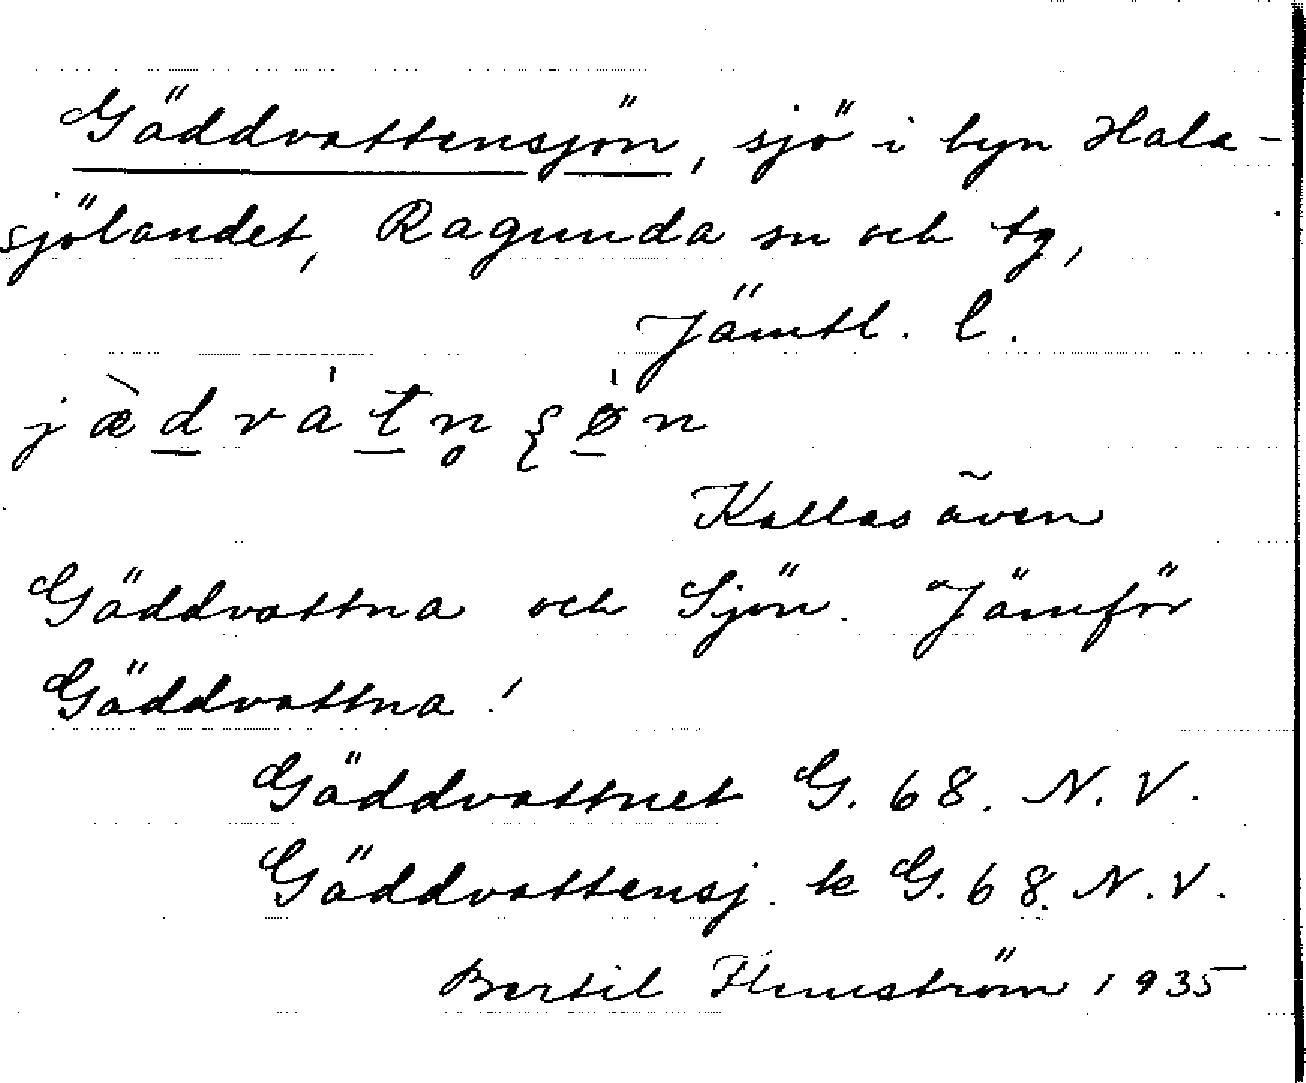 Gäddvattensjön, sjö i byn Hala-
sjölandet, Ragunda sn och tg,
Jämtl. l.
jæ̀dvàtn̥ʃø̀n
Kallas även
Gäddvattna och Sjön. Jämför
Gäddvattna!
Gäddvattnet G. 68. N. V.
Gäddvattensj. k G. 68. N. V.
Bertil Flemström 1935